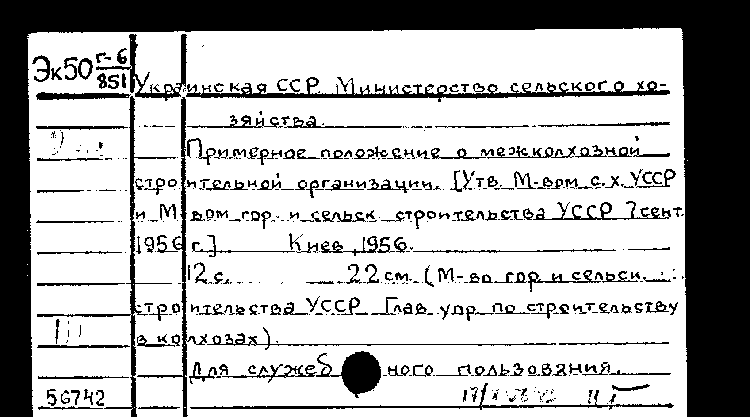 Эк50 г-6
851
Украинская ССР. Министерство сельского хо-
зяйства.
Примерное положение о межколхозной
строительной организации. [Утв. М-вом с.х. УССР
и М-вом гор. и сельск. строительства УССР 7 сент.
1956 г.] Киев, 1956.
12 с. 22 см. (М-во гор. и сельск.
строительства УССР. Глав. упр. по строительству
в колхозах).
Для служебного пользования.
56742